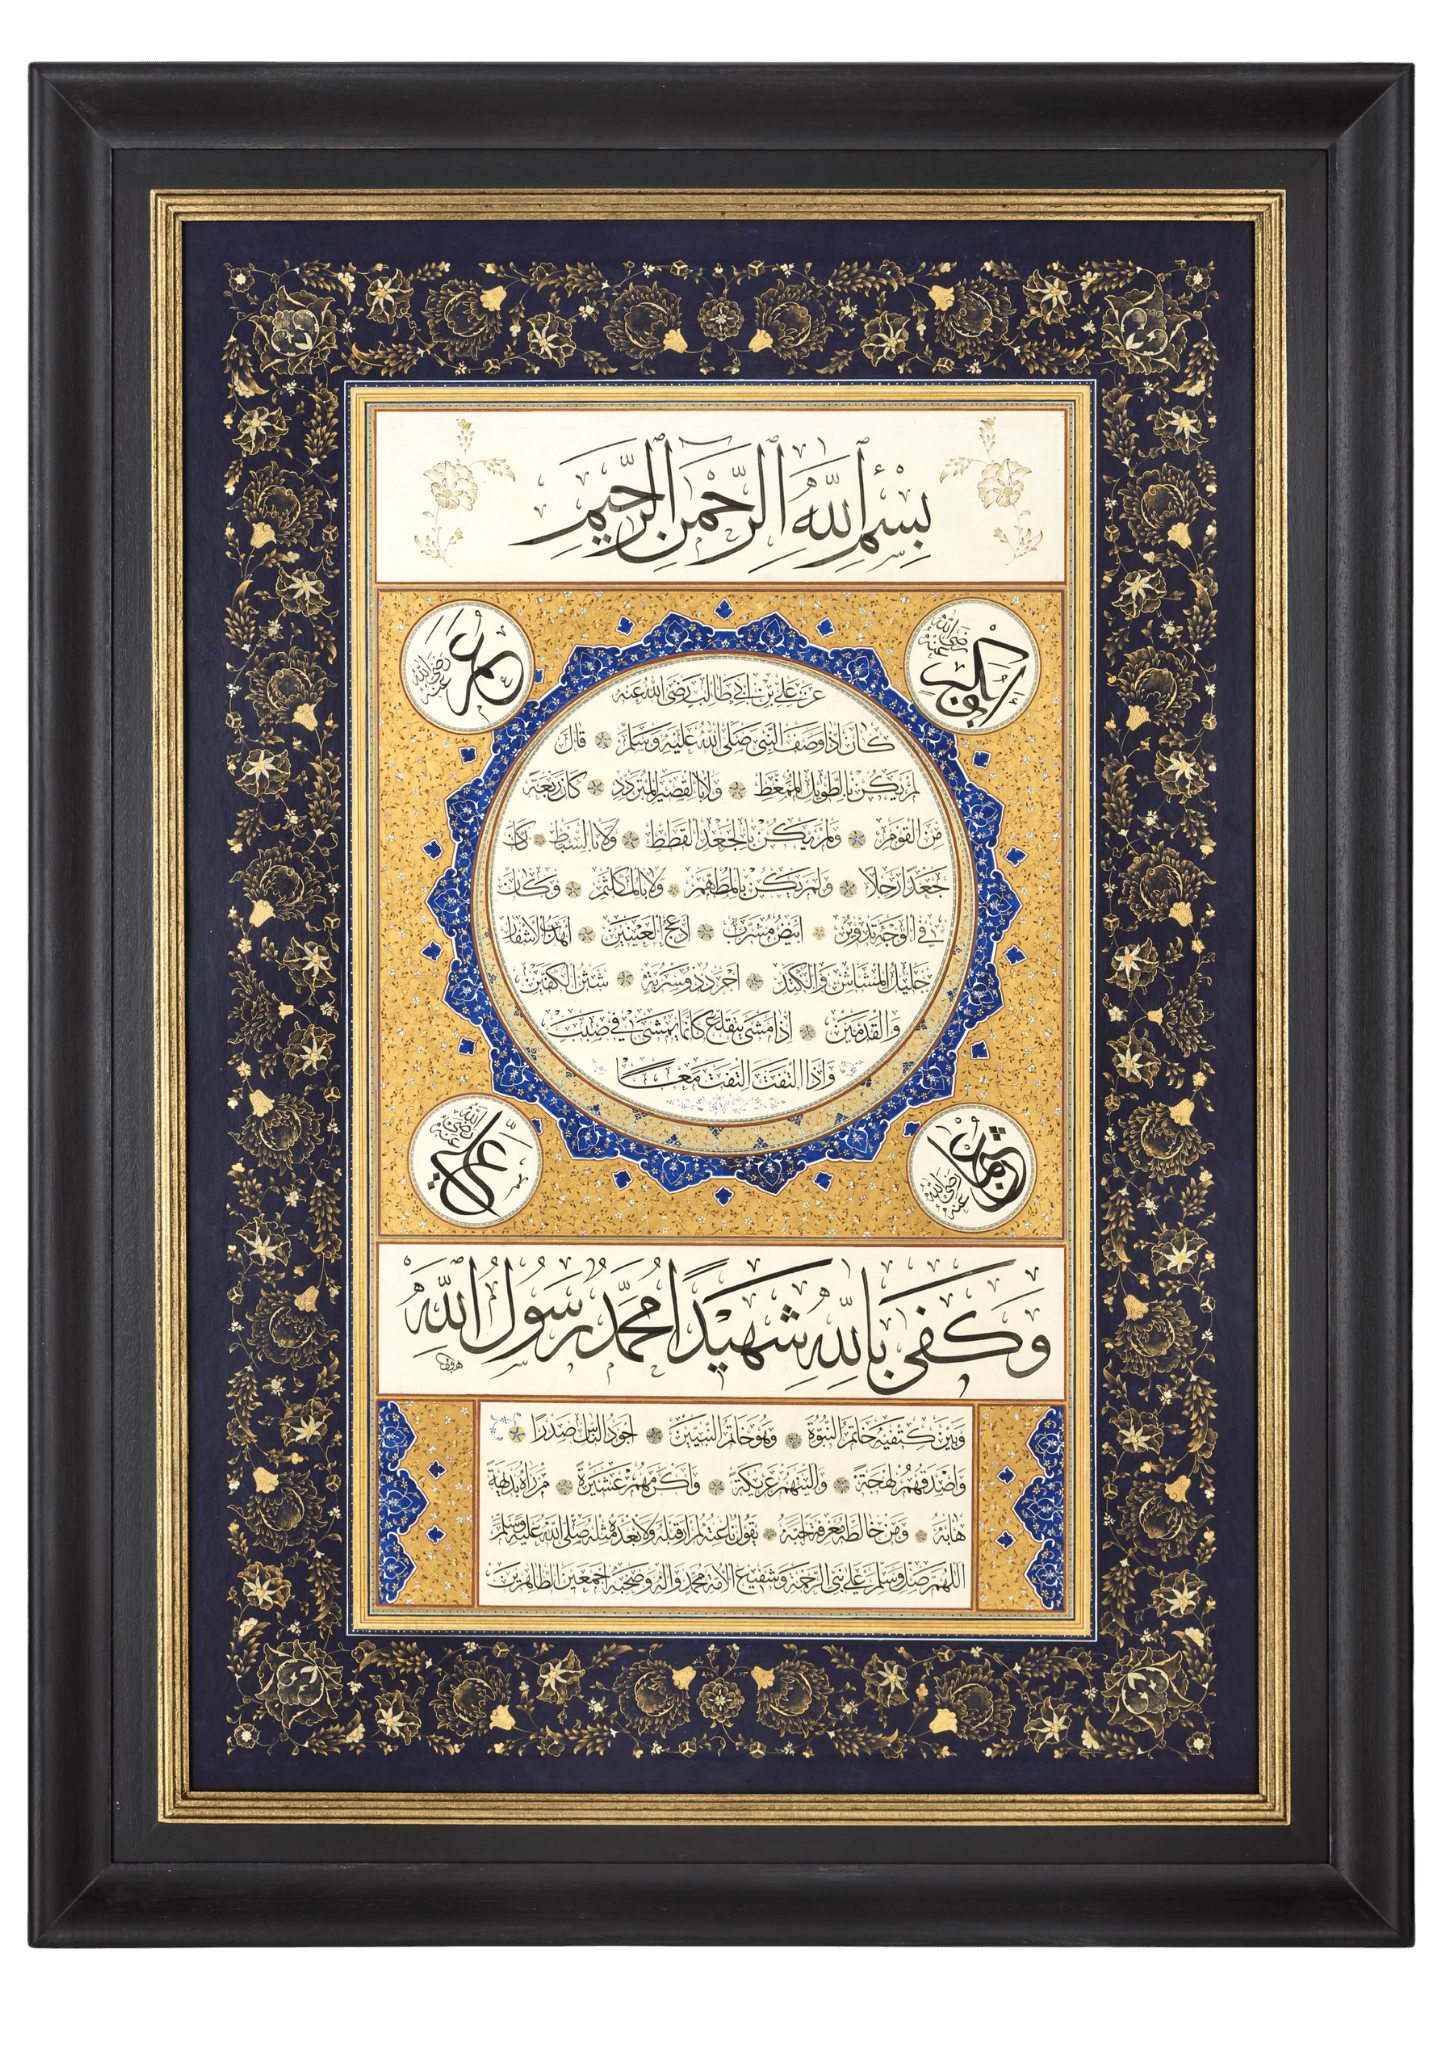 بِسْمِ اللَّهِ الرَّحْمَنِ الرَّحِيمِ
ابو بكر رضى الله عنه
عمر رضى الله عنه
عن على بن ابى طالب رضى الله عنه
كان اذا وصف النبى صلى الله عليه وسلم قال
لم يكن بالطويل الممغط ولا بالقصير المتردد كان ربعة
من القوم ولم يكن بالجعد القطط ولا بالسبط كان
جعدا رجلا ولم يكن بالمطهم ولا بالمكلثم وكان
فى الوجه تدوير ابيض مشرب ادعج العينين اهدب الاشفار
جليل المشاش والكتد اجرد ذو مسربة شثن الكفين
والقدمين اذا مشى يتقلع كانما يمشى فى صبب
واذا التفت التفت معا
عثمان رضى الله عنه
على رضى الله عنه
وَكَفَى بِاللَّهِ شَهِيدًا مُحَمَّدٌ رَسُولُ اللَّهِ
وبين كتفيه خاتم النبوة وهو خاتم النبيين اجود الناس صدرا
واصدقهم لهجة والينهم عريكة واكرمهم عشيرة من راه بديهة
هابه ومن خالطه معرفة احبه يقول ناعته لم ار قبله ولا بعده مثله صلى الله عليه وسلم
اللهم صل وسلم على نبى الرحمة وشفيع الامة محمد واله وصحبه اجمعين الطاهرين